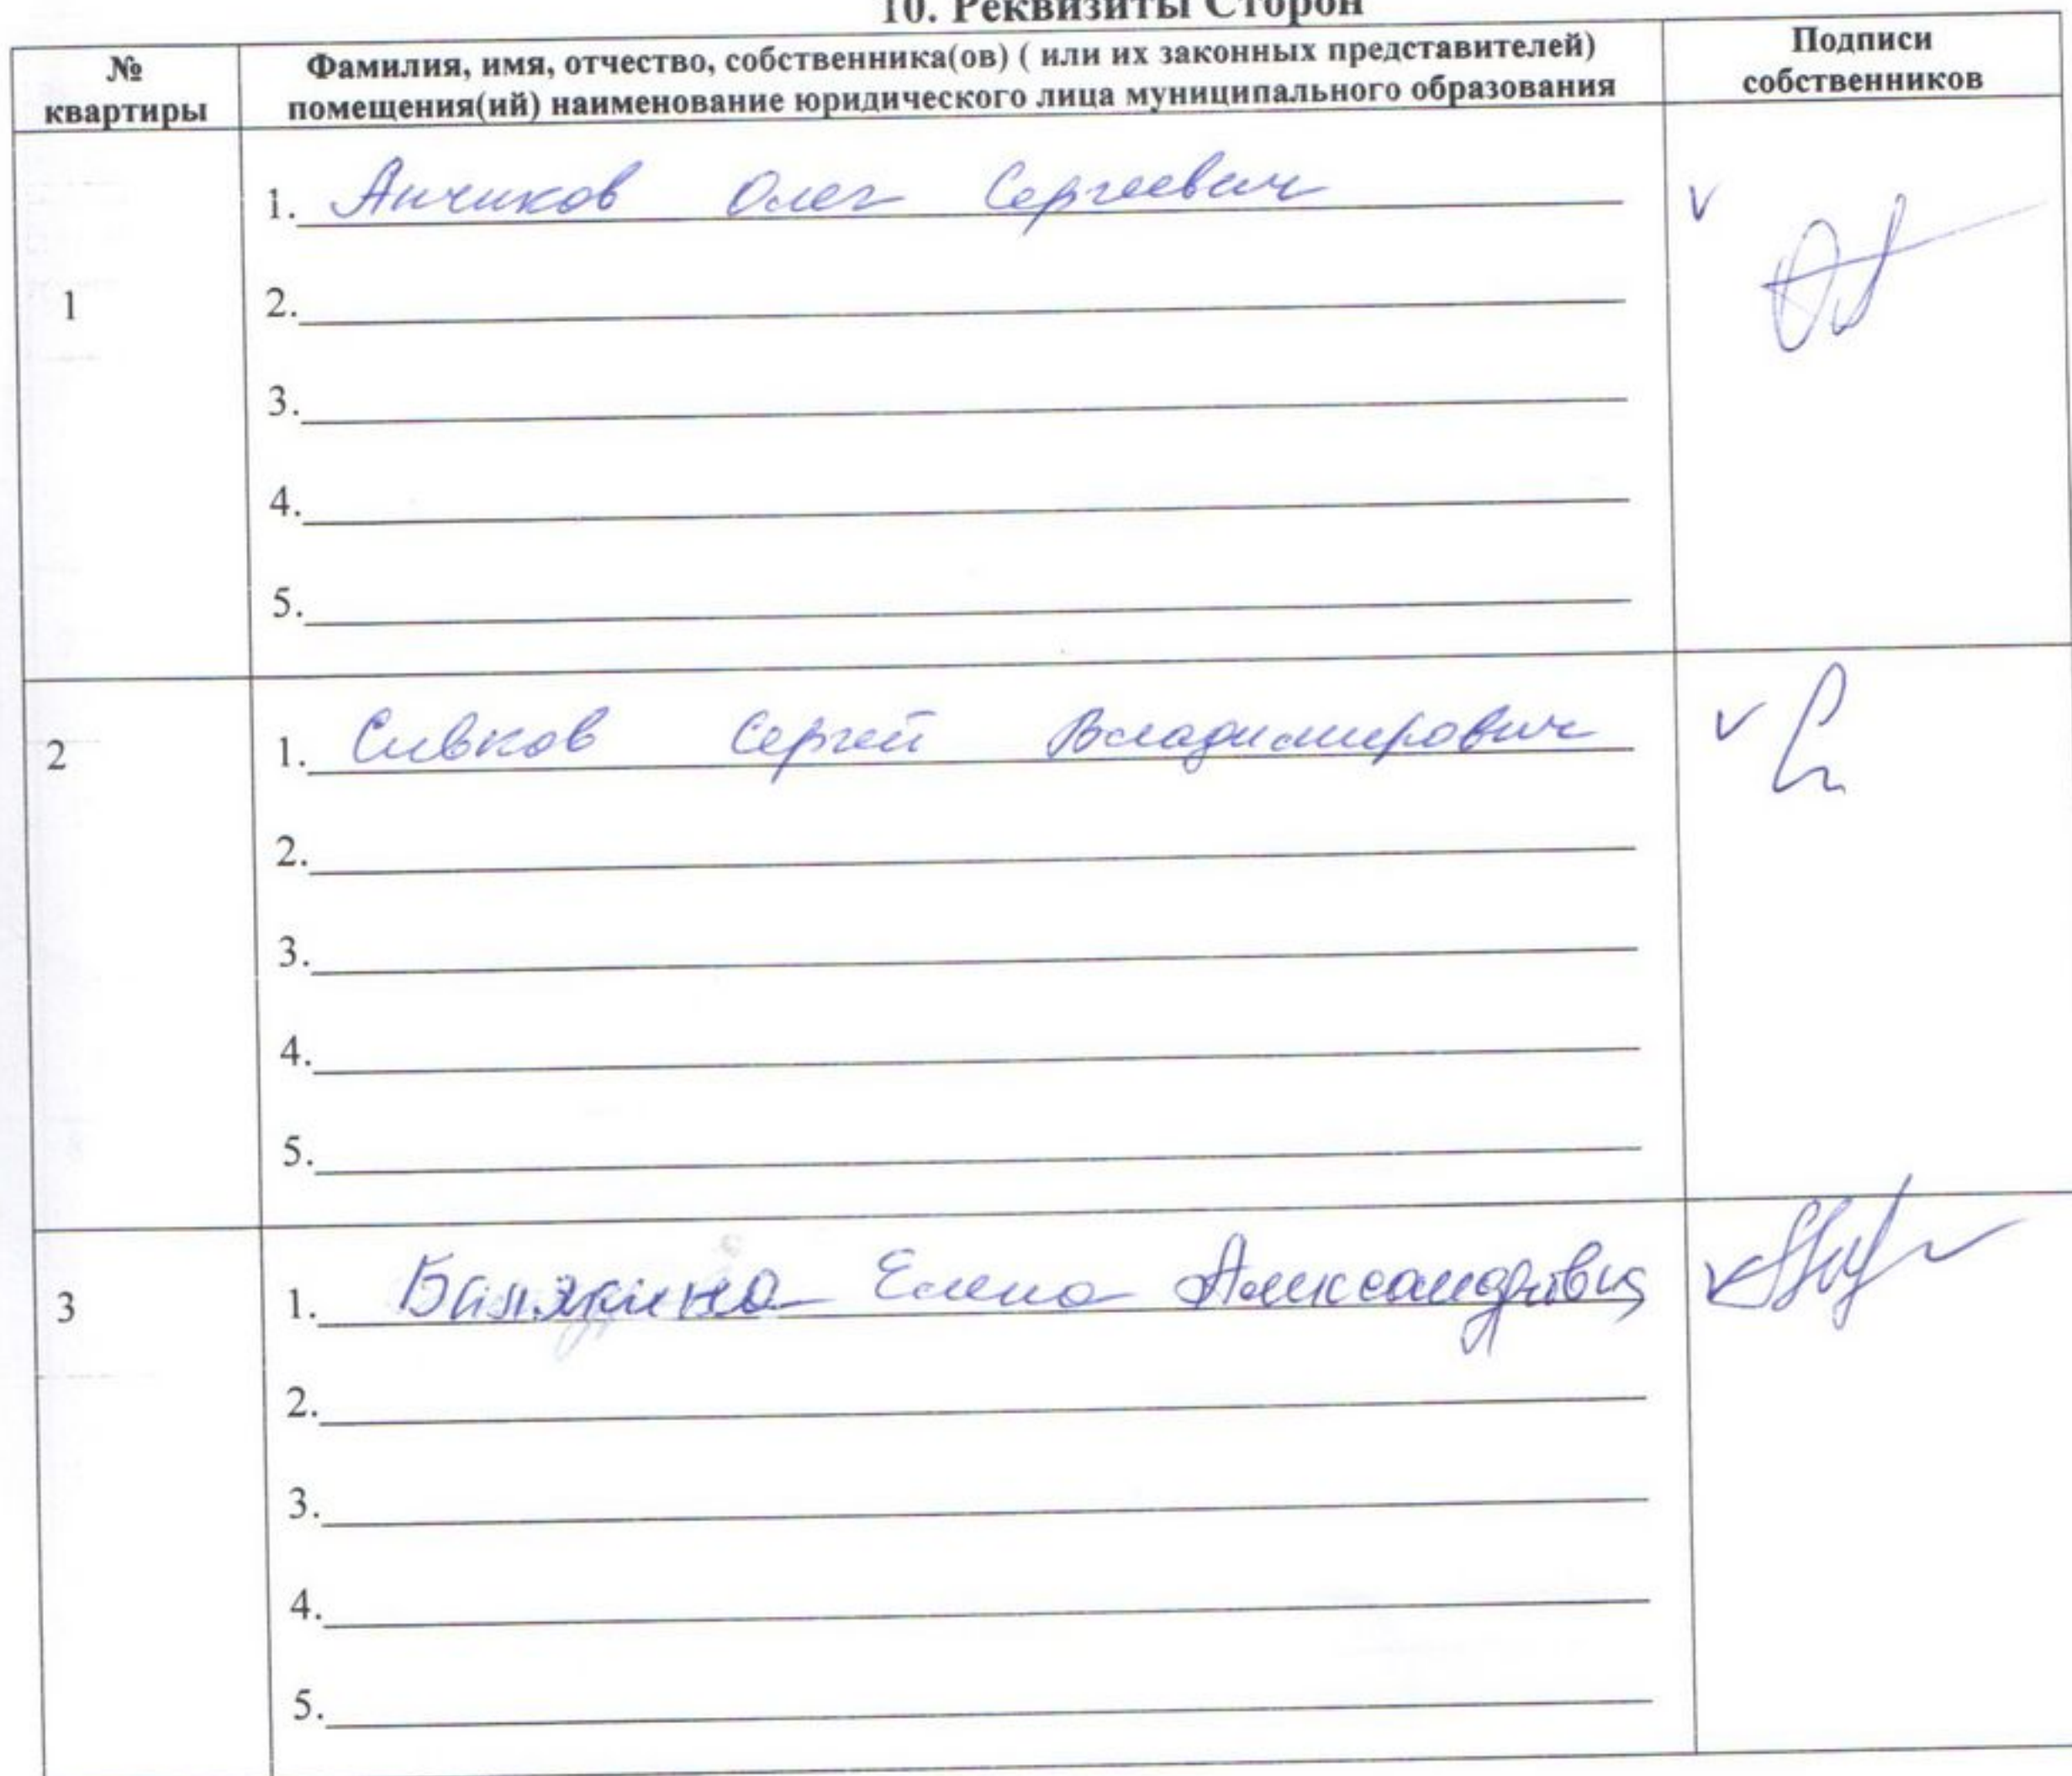 10. Реквизиты Сторон
№ квартиры
Фамилия, имя, отчество, собственника(ов) ( или их законных представителей)
помещения(ий) наименование юридического лица муниципального образования
Подписи
собственников
1
1. Анчиков Олег Сергеевич
2.
3.
4.
5.
2
1. Сивков Сергей Владимирович
2.
3.
4.
5.
3
1. Елена
2.
3.
4.
5.